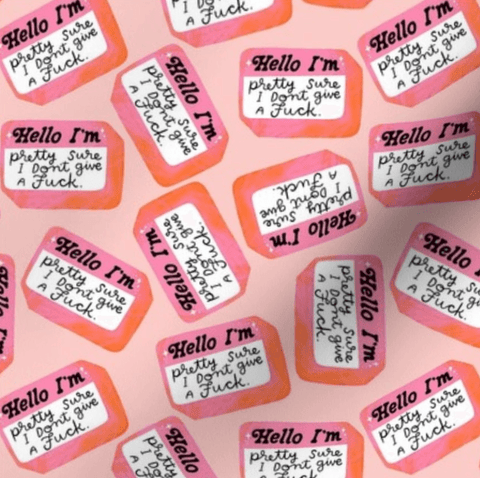 Hello I'm
pretty Sure
I Dont give
A Fuck.
A Fuck.
Hello I'm
pretty Sure
I Dont give
A Fuck.
Hello I'm
pretty Sure
I Dont give
A Fuck.
Hello I'm
pretty Sure
I Dont give
A Fuck.
Hello I'm
pretty Sure
I Dont give
A Fuck.
Hello I'm
pretty Sure
I Dont give
A Fuck.
Hello I'm
pretty Sure
I Dont give
A Fuck.
Hello I'm
pretty Sure
I Dont give
A Fuck.
Hello I'm
pretty Sure
I Dont give
A Fuck.
Hello
pretty
I Dont
A Fuck.
Hello I'm
Hello I'm
pretty Sure
I Dont give
A Fuck.
Hello I'm
pretty Sure
I Dont give
A Fuck.
Hello I'm
pretty Sure
I Dont give
A Fuck.
Hello I'm
pretty Sure
I Dont give
A Fuck.
Hello
pretty Sure
I Dont
Hello I'm
pretty Sure
I Dont give